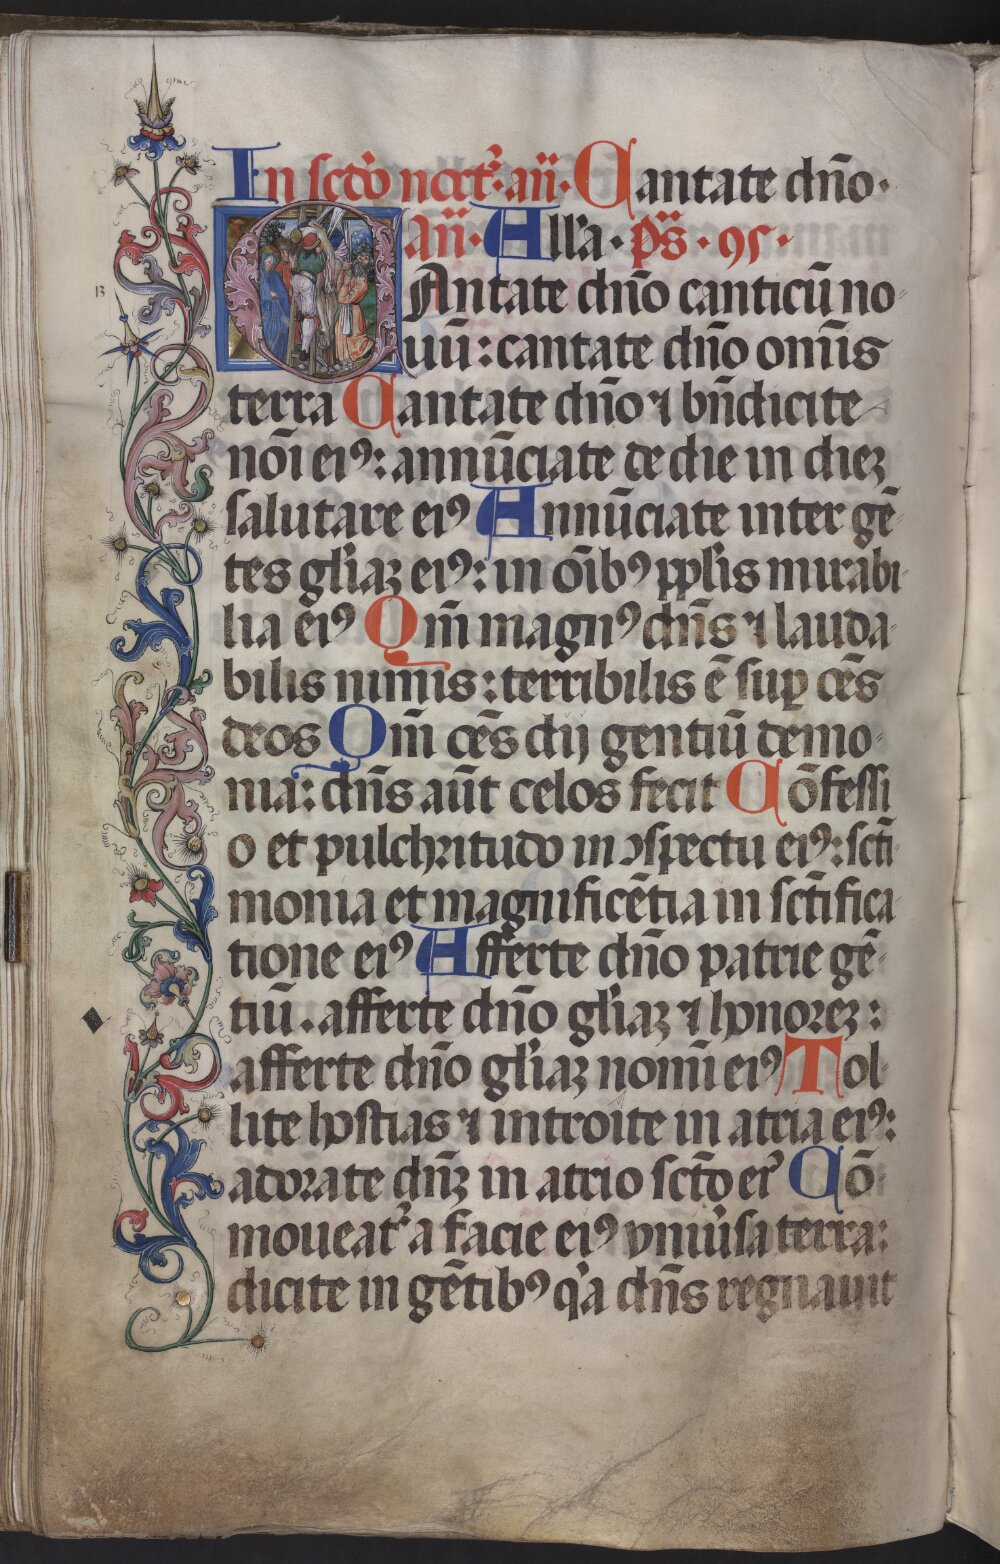 In sctõ noct᷒· an̄· Cantate dño·
an̄· All'a · ps̄ · 95 ·
CAntate dño canticū no⸗
uū : cantate dño om̄is
terra Cantate dño ⁊ bn̄dicite
nōi eiꝰ : annūciate de die in dieꝫ
salutare eiꝰ Annūciate inter gē⸗
tes gl'iaꝫ eiꝰ : in oībꝰ ppl'is mirabi⸗
lia eiꝰ Qm̄ magnꝰ dn̄s ⁊ lauda⸗
bilis nimis : terribilis ē suꝑ oēs
deos Qm̄ oēs dij gentiū demo⸗
nia : dn̄s aūt celos fecit Cōfessi
o et pulchritudo in ɔspectu eiꝰ : scti⸗
monia et magnificētia in sctīfica⸗
tione eiꝰ Afferte dño patrie gē⸗
tiū . afferte dño gl'iaꝫ ⁊ honoreꝫ :
afferte dño gl'iaꝫ nomī eiꝰ Tol⸗
lite hostias ⁊ introite in atria eiꝰ :
adorate dn̄ꝫ in atrio sctō eiꝰ Cō⸗
moueat᷒ a facie eiꝰ vniu'sa terra :
dicite in gētibꝰ q'a dn̄s regnauit
13